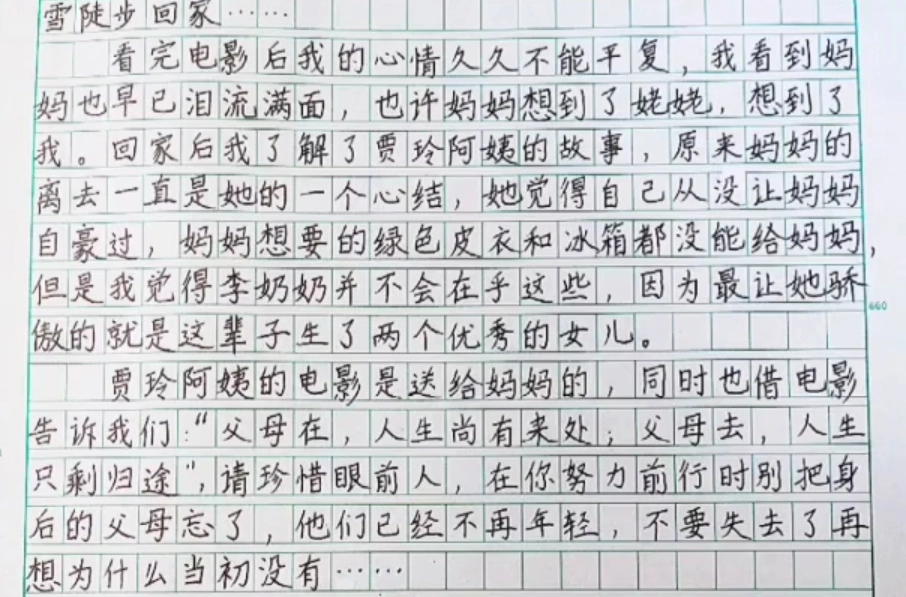 雪徒步回家……
看完电影后我的心情久久不能平复，我看到妈
妈也早已泪流满面，也许妈妈想到了姥姥，想到了
我。回家后我了解了贾玲阿姨的故事，原来妈妈的
离去一直是她的一个心结，她觉得自己从没让妈妈
自豪过，妈妈想要的绿色皮衣和冰箱都没能给妈妈，
但是我觉得李奶奶并不会在乎这些，因为最让她骄
傲的就是这辈子生了两个优秀的女儿。
660
贾玲阿姨的电影是送给妈妈的，同时也借电影
告诉我们：“父母在，人生尚有来处；父母去，人生
只剩归途”，请珍惜眼前人，在你努力前行时别把身
后的父母忘了，他们已经不再年轻，不要失去了再
想为什么当初没有……